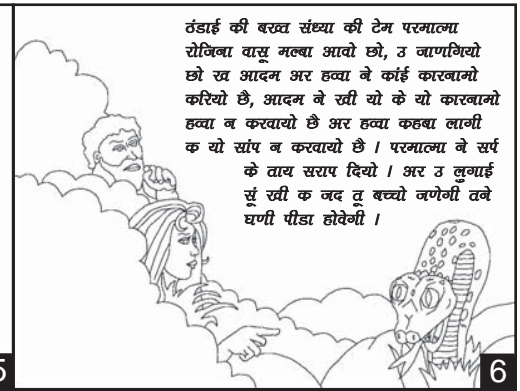 ठंडाई की बख्त संध्या की टेम परमात्मा
रोजिना वासू मल्बा आवो छो, उ जाणगियो
छो ख आदम अर हव्वा ने कांई कारनामो
करियो छै, आदम ने खी यो के यो कारनामो
हव्वा न करवायो छै अर हव्वा कहबा लागी
क यो सांप न करवायो छै । परमात्मा ने सर्प
के ताय सराप दियो । अर उ लुगाई
सूं खी क जद तू बच्चो जणेगी तने
घणी पीडा होवेगी ।
5
6